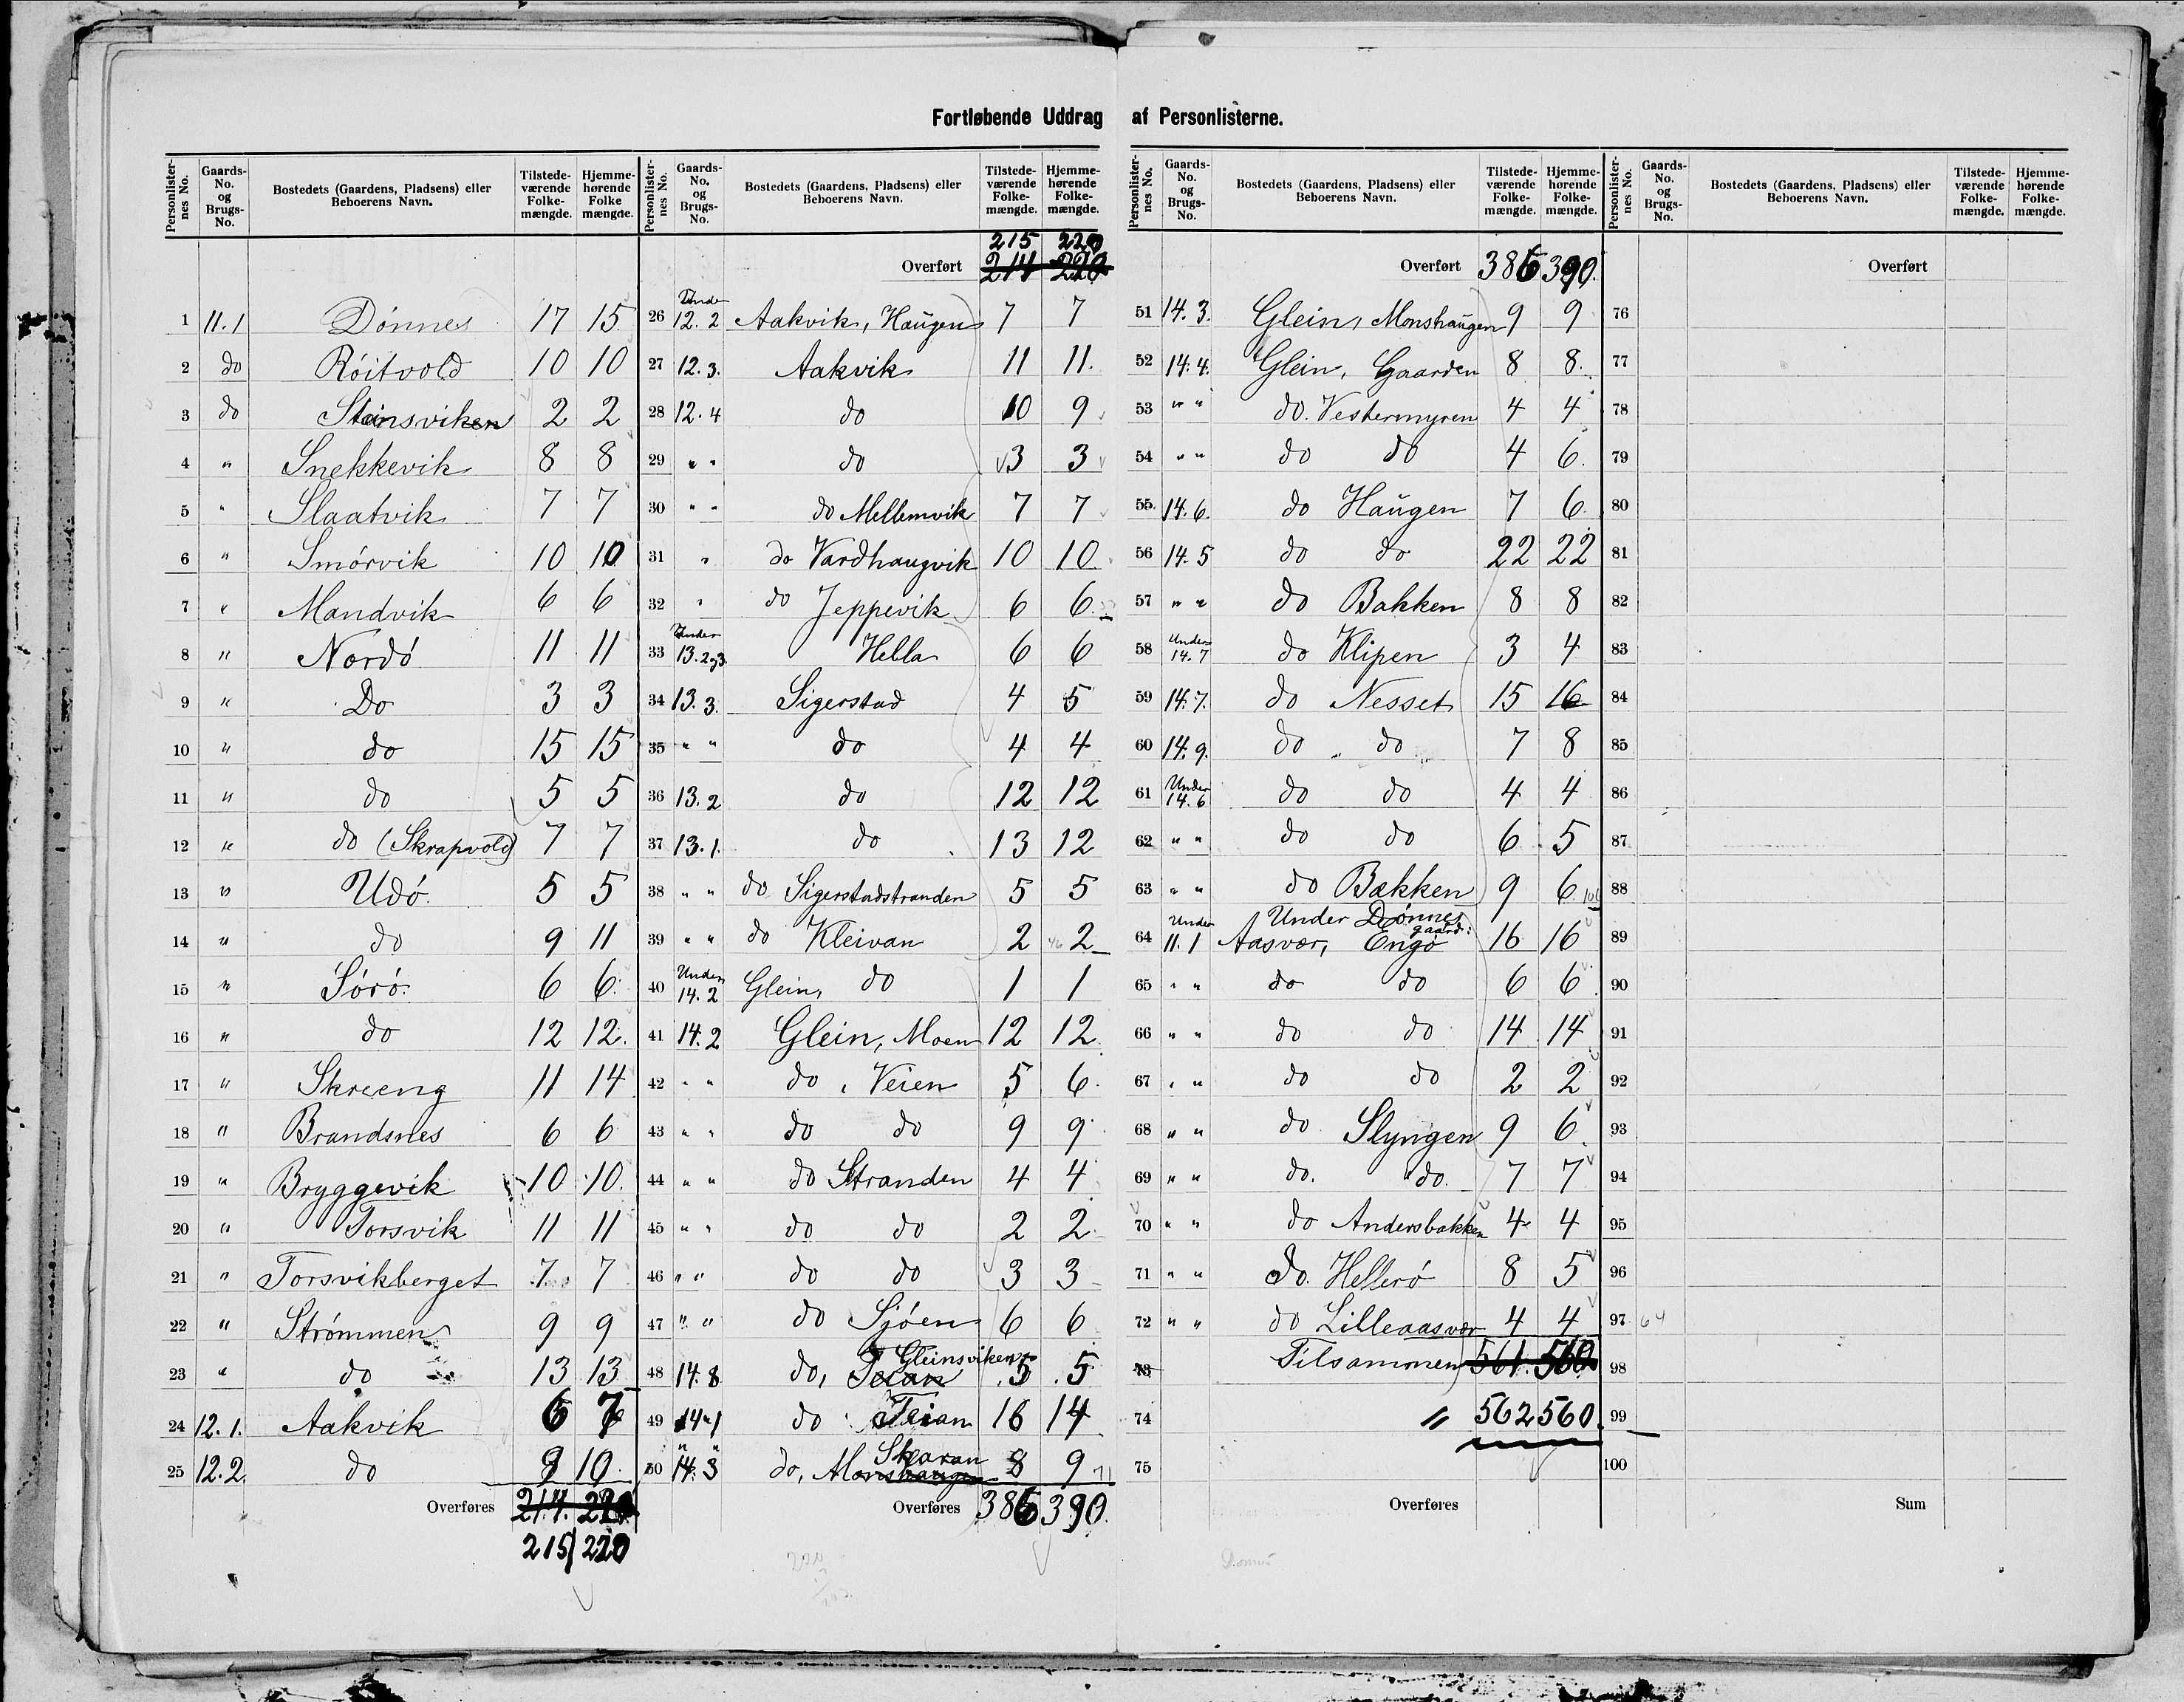 Fortløbende Uddrag af Personlisterne.
Personlisternes No. | Gaards-No. og Brugs-No. | Bostedets (Gaardens, Pladsens) eller Beboerens Navn. | Tilstedeværende Folkemængde. | Hjemmehørende Folke mængde.
1 11.1 Dönnes 17 15
2 do Röitvold 10 10
3 do Steinsviken 2 2
4 " Snekkevik 8 8
5 " Slaatvik 7 7
6 " Smörvik 10 10
7 " Mandvik 6 6
8 " Nordö 11 11
9 " Do 3 3
10 " do 15 15
11 " do 5 5
12 " do (Skrapvold) 7 7
13 " Udö 5 5
14 " do 9 11
15 " Sörö 6 6
16 " do 12 12
17 " Skreeng 11 14
18 " Brandsnes 6 6
19 " Bryggevik 10 10
20 " Torsvik 11 11
21 " Torsvikberget 7 7
22 " Strømmen 9 9
23 " do 13 13
24 12.1. Aakvik 6 7
25 12.2. do 9 10
Overføres 214. 220
215 220
Personlisternes No. | Gaards-No. og Brugs-No. | Bostedets (Gaardens, Pladsens) eller Beboerens Navn. | Tilstedeværende Folkemængde. | Hjemmehørende Folkemængde.
215 220
Overført 214 220
26 Under 12.2 Aakvik, Haŭgen 7 7
27 12.3. Aakvik 11 11.
28 12.4 do 10 9
29 " " do 3 3
30 " " do Mellemvik 7 7
31 " do Vardhaugvik 10 10
32 " do Jeppevik 6 6
33 Under 13.2 og 3 Hella 6 6
34 13.3. Sigerstad 4 5
35 " " do 4 4
36 13.2 do 12 12
37 13.1. do 13 12
38 " " do Sigerstadstranden 5 5
39 " " do Kleivan 2 46 2
40 Under 14.2 Glein, do 1 1
41 14.2 Glein, Moen 12 12
42 " " do, Veien 5 6
43 " " do do 9 9
44 " " do Stranden 4 4
45 " " do do 2 2
46 " " do do 3 3
47 " " do Sjöen 6 6
48 14.8 do, Teian Gleinsviken 5 5
49 14.1 do Teian 16 14
50 14.3 do, Monshaugen Skaran 8 9 71
Overføres 386 390.
Personlisternes No. | Gaards-No. og Brugs-No. | Bostedets (Gaardens, Pladsens) eller Beboerens Navn. | Tilstedeværende Folkemængde. | Hjemmehørende Folkemængde.
Overført 386 390.
51 14.3. Glein, Monshaŭgen 9 9
52 14.4. Glein, Gaarden 8 8.
53 " " do. Vestermyren 4 4
54 " " do do 4 6.
55 14.6. do Haŭgen 7 6
56 14.5 do do 22 22
57 " " do Bakken 8 8
58 Under 14.7 do Klipen 3 4
59 14.7. do Nesset 15 16
60 14.9. do do 7 8
61 Under 14.6 do do 4 4
62 " " do do 6 5
63 " " do Bækken 9 6
64 Under 11.1 Under Dønnesgaard: Aasvær, Engø 16 16
65 " " do do 6 6
66 " " do do 14 14
67 " " do do 2 2
68 " " do Slyngen 9 6
69 " " do. do. 7 7
70 " " do Andersbakken 4 4
71 " " Do. Hellerö 8 5
72 " " do Lilleaasvær 4 4
73 Tilsammen 561. 560
74 " 562 560.
75
Overføres
Personlisternes No. | Gaards-No. og Brugs-No. | Bostedets (Gaardens, Pladsens) eller Beboerens Navn. | Tilstedeværende Folkemængde. | Hjemmehørende Folkemængde.
Overført
76
77
78
79
80
81
82
83
84
85
86
87
88
89
90
91
92
93
94
95
96
97 64
98
99
100
Sum